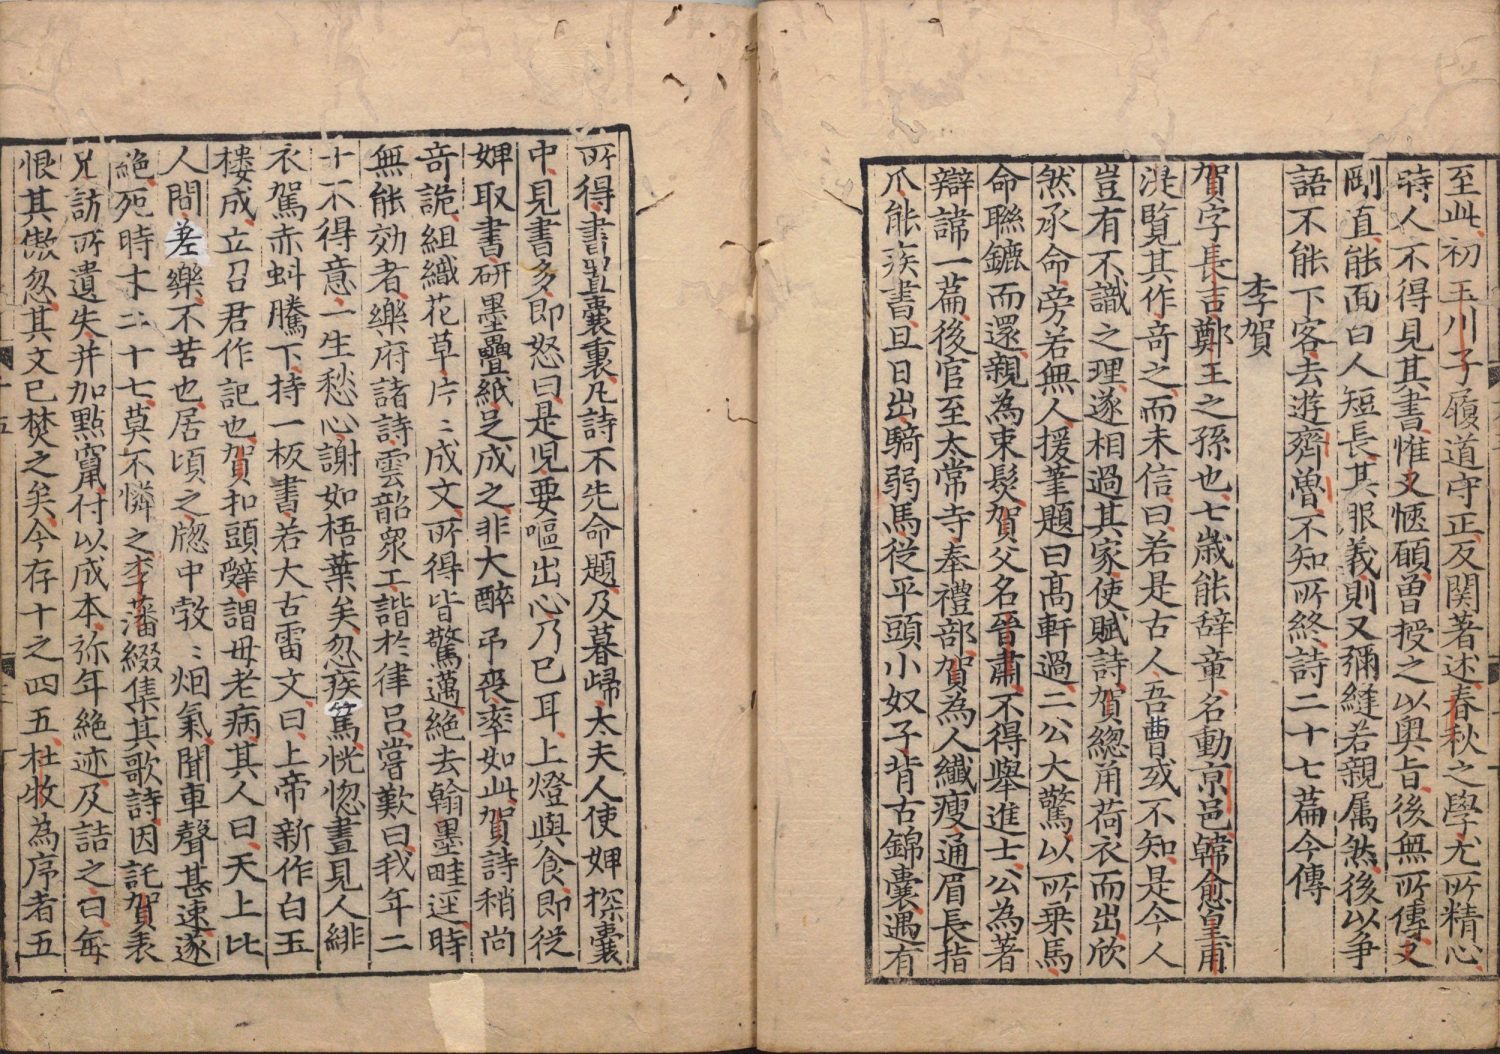 至此初玉川子履道守正反関著述春秋之學尤所精心
時人不得見其書惟又愜願曽授之以奥㫖後無所傳又
剛直能面曰人短長其服義則又彌縫若親属然後以争
語不能下客去遊齊魯不知所終詩二十七篇今傳
李賀
賀字長吉鄭王之孫也七歳能辞章名動京邑韓愈皇甫
湜覧其作奇之而未信曰若是古人吾曹或不知是今人
豈有不識之理遂相過其家使賦詩賀緫角荷衣而出欣
然承命旁若無人援筆題曰髙軒過二公大驚以所乗馬
命聯鑣而還親為束髮賀父名晉肅不得舉進士公為著
辯諱一篇後官至太常寺奉禮部賀為人纎瘦通眉長指
爪能疾書旦日出騎弱馬従平頭小奴子背古錦囊遇有
所得書置囊裏凡詩不先命題及暮歸太夫人使婢探囊
中見書多即怒曰是児要嘔出心乃已耳上燈與食即従
婢取書研墨疊紙足成之非大醉弔喪率如此賀詩稍尚
奇詭組織花草片〻成文所得皆驚邁絶去翰墨畦逕時
無能効者樂府諸詩雲韶衆工諧於律呂嘗歎曰我年二
十不得意一生愁心謝如梧葉矣忽疾篤恍惚晝見人緋
衣駕赤蚪騰下持一板書若大古雷文曰上帝新作白玉
樓成立召君作記也賀扣頭辭謂母老病其人曰天上比
人間差樂不苦也居頃之牎中㪍〻烟氣聞車聲甚速遂
絶死時才二十七莫不憐之李藩綴集其歌詩因託賀表
兄訪所遺失并加點竄付以成本弥年絶迹及詰之曰每
恨其傲忽其文已焚之矣今存十之四五杜牧為序者五